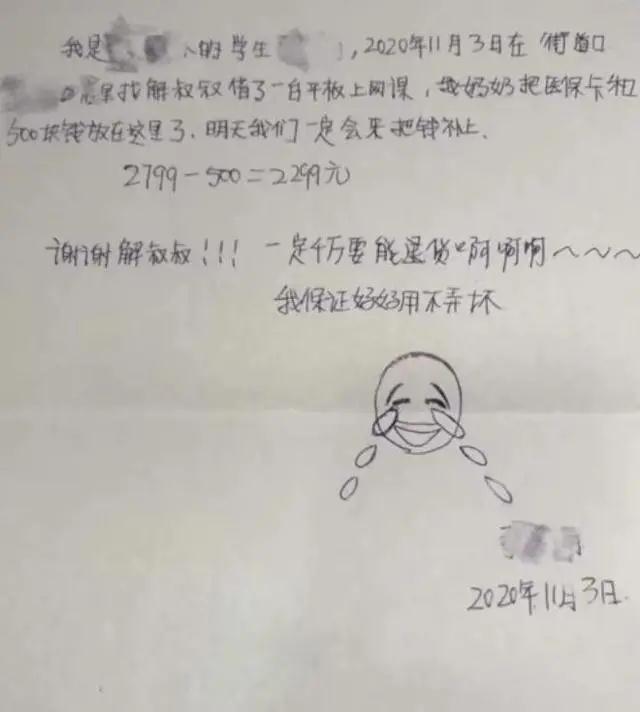 我是 的学生 ,2020年11月3日在 街道口
找解叔叔借了一台平板上网课,我妈妈把医保卡和
500块钱放在这里了.明天我们一定会来把钱补上.
2799-500=2299元
谢谢解叔叔!!! 一定千万要能退货啊啊啊~~~
我保证好好用不弄坏
2020年11月3日.